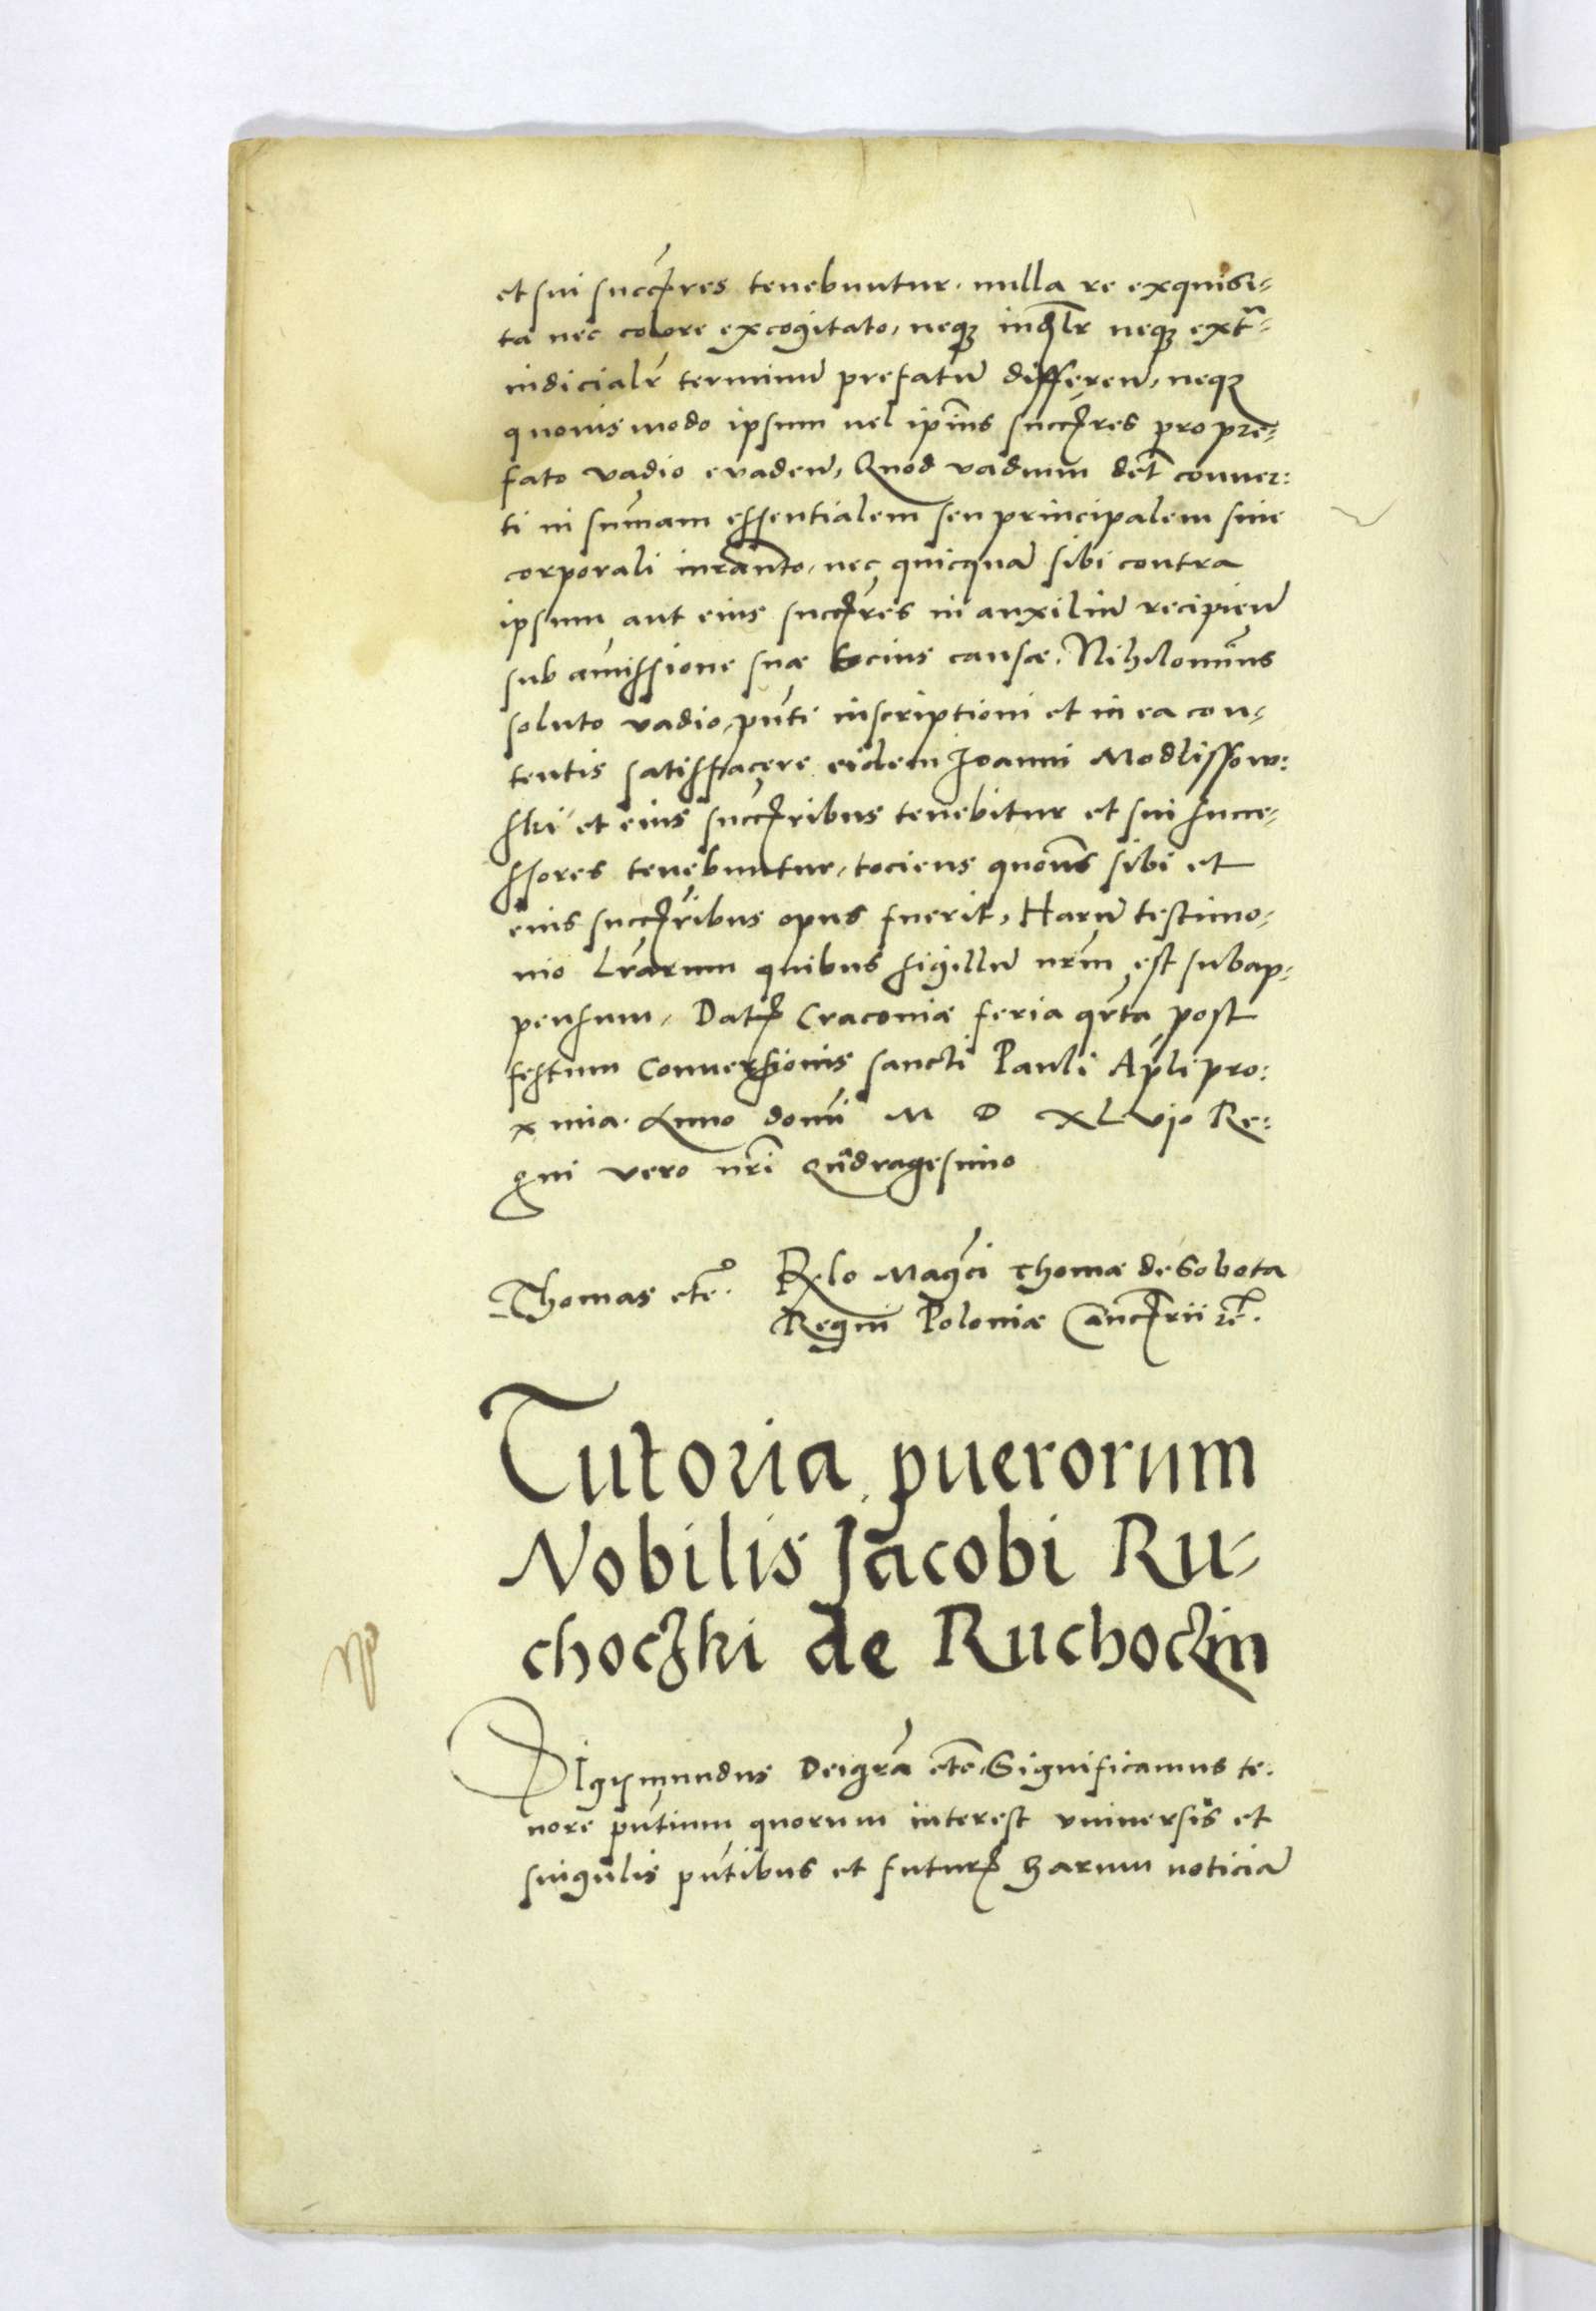 et sui succres tenebuntur. nulla re exquisi-
ta nec colore excogitato, neq; indlr neq; extra-
iudicialr terminũ prefatũ differeñ, neq;
quouis modo ipsum uel ipsius succres pro pre-
fato vadio euadeñ, Quod vadium det conuer:
ti in sũmam essentialem seu principalem sine
corporali iurãnto, nec quicquã sibi contra
ipsum aut eius succres in auxiliũ recipieñ
sub amissione suæ tocius causæ. Nihilominus
soluto vadio, pñti inscriptioni et in ea con-
tentis satisffacere eidem Joanni Modlissow:
ski et eius succribus tenebitur et sui succe-
ssores tenebuntur, tociens quotiens sibi et
eius succribus opus fuerit, Harũ testimo-
nio Lrãrum quibus sigillũ nrm̃ est subap-
pensum, Dat Cracouiæ feria qrta post
festum Conuersionis sancti Pauli Apli pro:
xima. Anno domi M D XLvjo Re:
gni vero nri Quadragesimo
Thomas etc. Relo Magci Thomæ de Sobota
Regni Poloniæ Cancrii etc.
Tutoria puerorum
Nobilis Jacobi Ru-
choczki de Ruchoczin
SIgismundus Dei gra etc Significamus te:
nore pñtium quorum interest vniuersis et
singulis pñtibus et futur harum noticiã